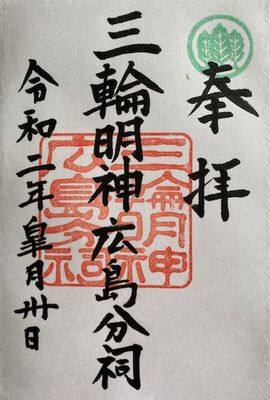 奉拝
三輪明神広島分祠
令和二年皐月卅日
三輪明神広島分祠